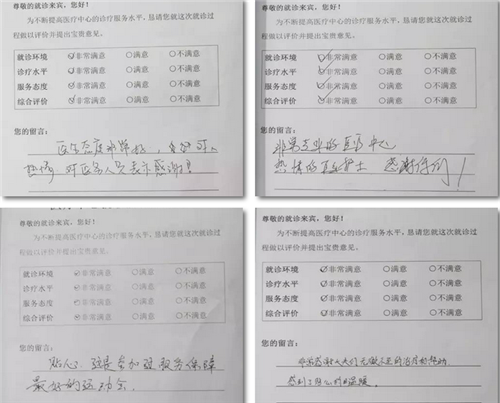 尊敬的就诊来宾，您好！
为不断提高医疗中心的诊疗服务水平，恳请您就这次就诊过
程做以评价并提出宝贵意见。
就诊环境 非常满意 ○满意 ○不满意
诊疗水平 非常满意 ○满意 ○不满意
服务态度 非常满意 ○满意 ○不满意
综合评价 非常满意 ○满意 ○不满意
您的留言：
医生态度非常好，
热情，对医务人员表示感谢！
尊敬的就诊来宾，您好！
为不断提高医疗中心的诊疗服务水平，恳请您就这次就诊过
程做以评价并提出宝贵意见。
就诊环境 非常满意 ○满意 ○不满意
诊疗水平 非常满意 ○满意 ○不满意
服务态度 非常满意 ○满意 ○不满意
综合评价 非常满意 ○满意 ○不满意
您的留言：
非常专业的医疗中心
热情的医护士 感谢你们！
尊敬的就诊来宾，您好！
为不断提高医疗中心的诊疗服务水平，恳请您就这次就诊过
程做以评价并提出宝贵意见。
就诊环境 非常满意 ○满意 ○不满意
诊疗水平 非常满意 ○满意 ○不满意
服务态度 非常满意 ○满意 ○不满意
综合评价 非常满意 ○满意 ○不满意
您的留言：
贴心 这是参加过服务保障
最好的运动会.
尊敬的就诊来宾，您好！
为不断提高医疗中心的诊疗服务水平，恳请您就这次就诊过
程做以评价并提出宝贵意见。
就诊环境 非常满意 ○满意 ○不满意
诊疗水平 非常满意 ○满意 ○不满意
服务态度 非常满意 ○满意 ○不满意
综合评价 非常满意 ○满意 ○不满意
您的留言：
非常感谢大夫们无微不至的治疗和帮助
感到了